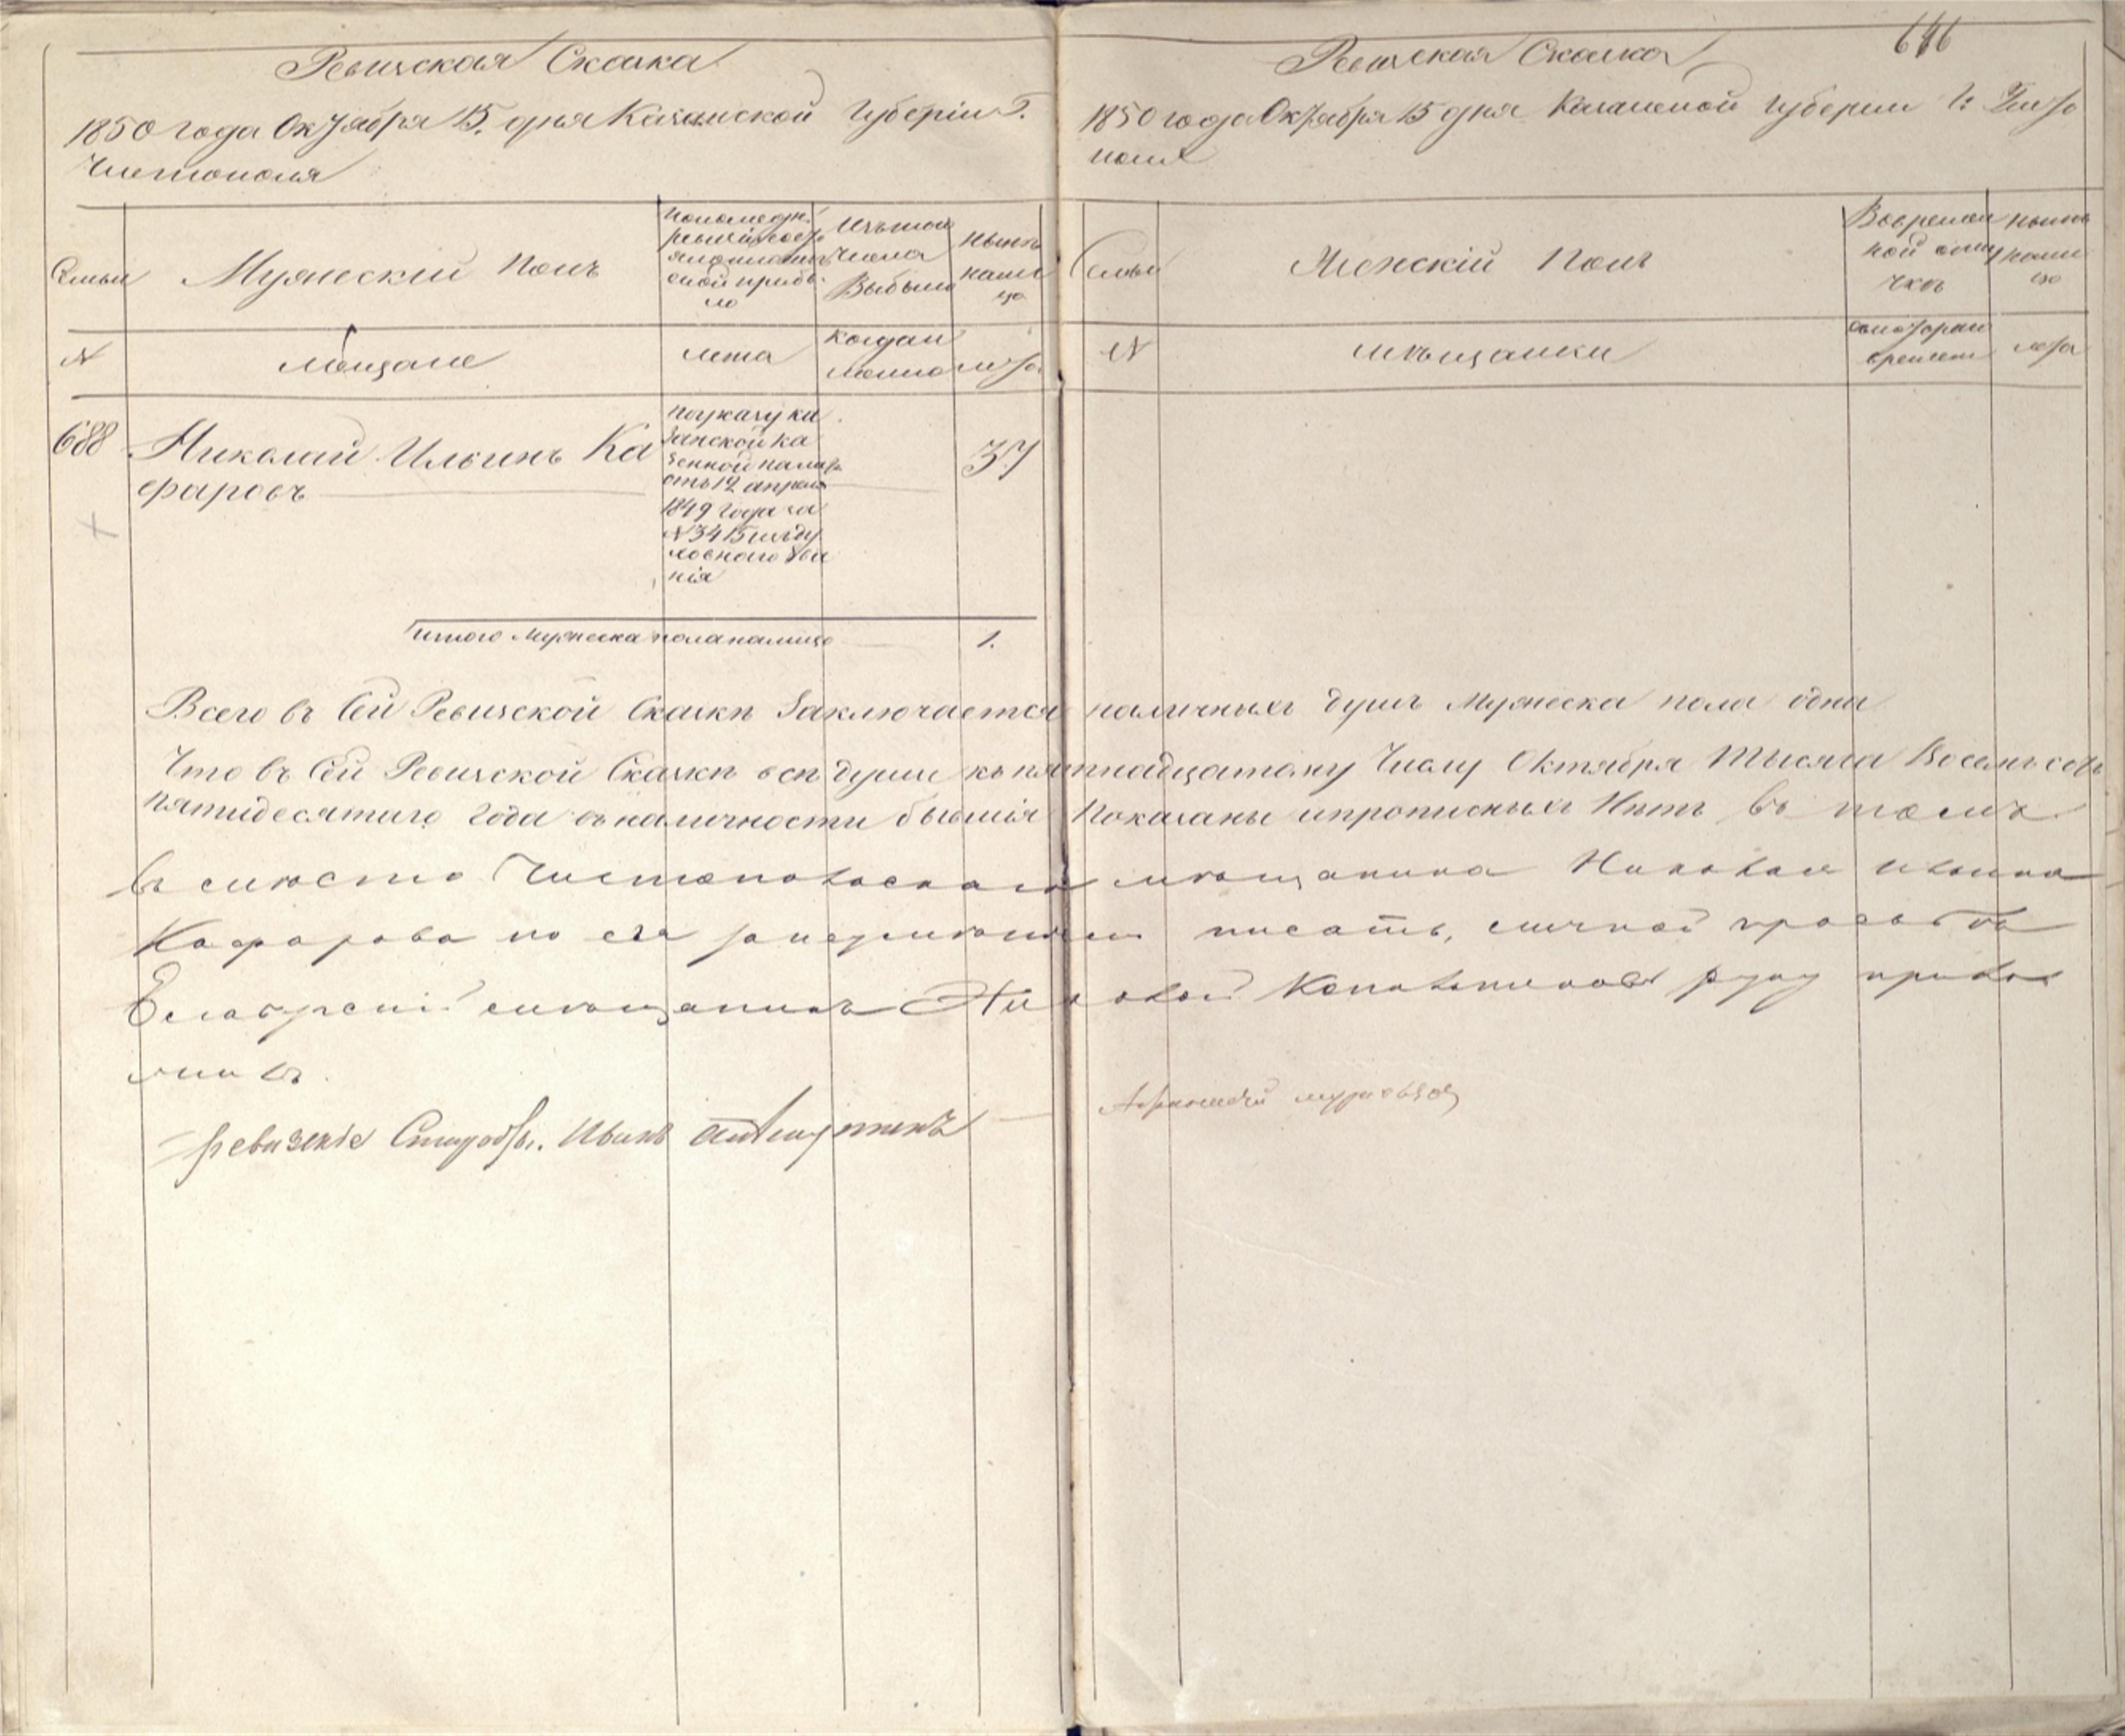 Ревизская Сказка
1850 года Октября 15. дня Казанской Губерніи Г.
Чистополя
Семьи
Мужескій Полъ
по последн.
ревизіи состо
яло и после
оной прибы
ло
Изъ того
числа
Выбыло
Ныне
налі
цо
N
Мещане
лета
когда и
лета
688
Николай Ильинъ Ка
фаровъ
37
по указу Ка
занской ка
зенной палаты
отъ 12 апреля
1849 года за
N 3415 из ду
ховного зва
нія
итого Мужеска пола налицо
1.
646
Ревизская Сказка
1850 года Октября 15 дня Казанской Губерніи Г: Чисто
поля
Семьи
Женскій Полъ
Во временн
ной отлу
чкѣ
ныне
нали
цо
N
мѣщанки
лета
Всего въ Сей Ревизской Сказкѣ Заключается наличныхъ душъ Мужеска пола одна
Что въ Сей Ревизской Сказкѣ всѣ души къ пятнадцатому Числу Октября Тысяча Восемьсотъ
пятидесятаго Года въ наличности бывшія Показаны и прописныхъ Нѣтъ въ томъ
въ место Чистопольскаго мещанина Николая Ильина
Кафарова по его писать, личной прозьбѣ
мещанинъ руку прило
жилъ.
Иванъ